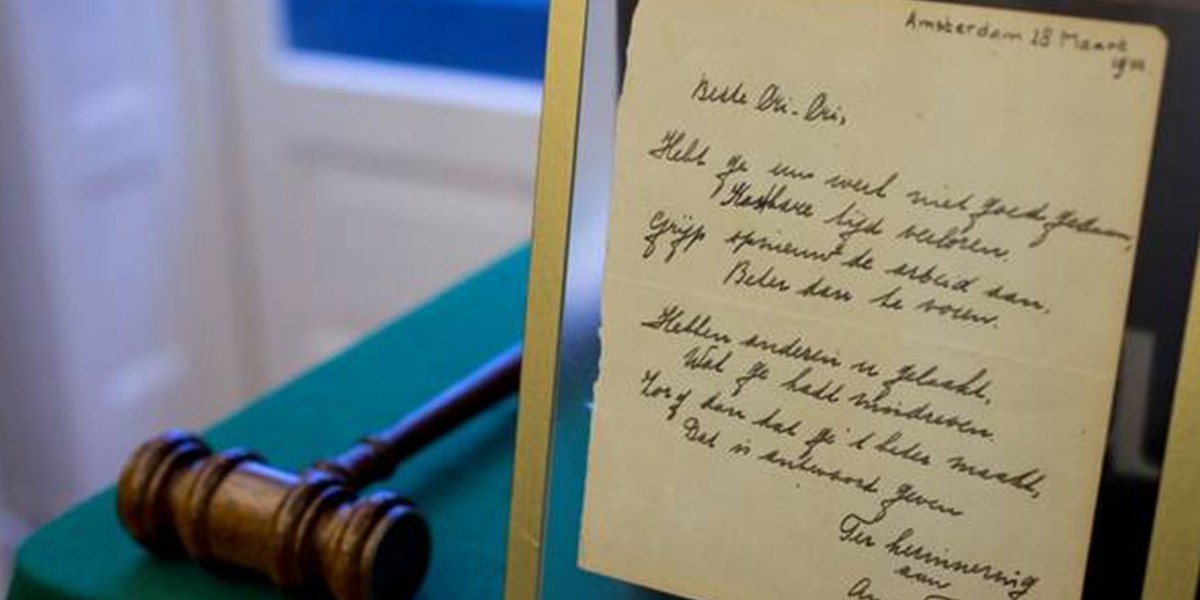 Amsterdam Maart
Beste Cri-Cri,
Hebt ge uw werk niet goed gedaan,
Kostbare tijd verloren.
Grijp opnieuw de arbeid aan.
Beter dan te voren.
Hebben anderen u gelaakt,
Wat ge hadt misdreven.
Zorg dan dat ge 't beter maakt,
Dat is antwoord geven
Ter herinnering
aan